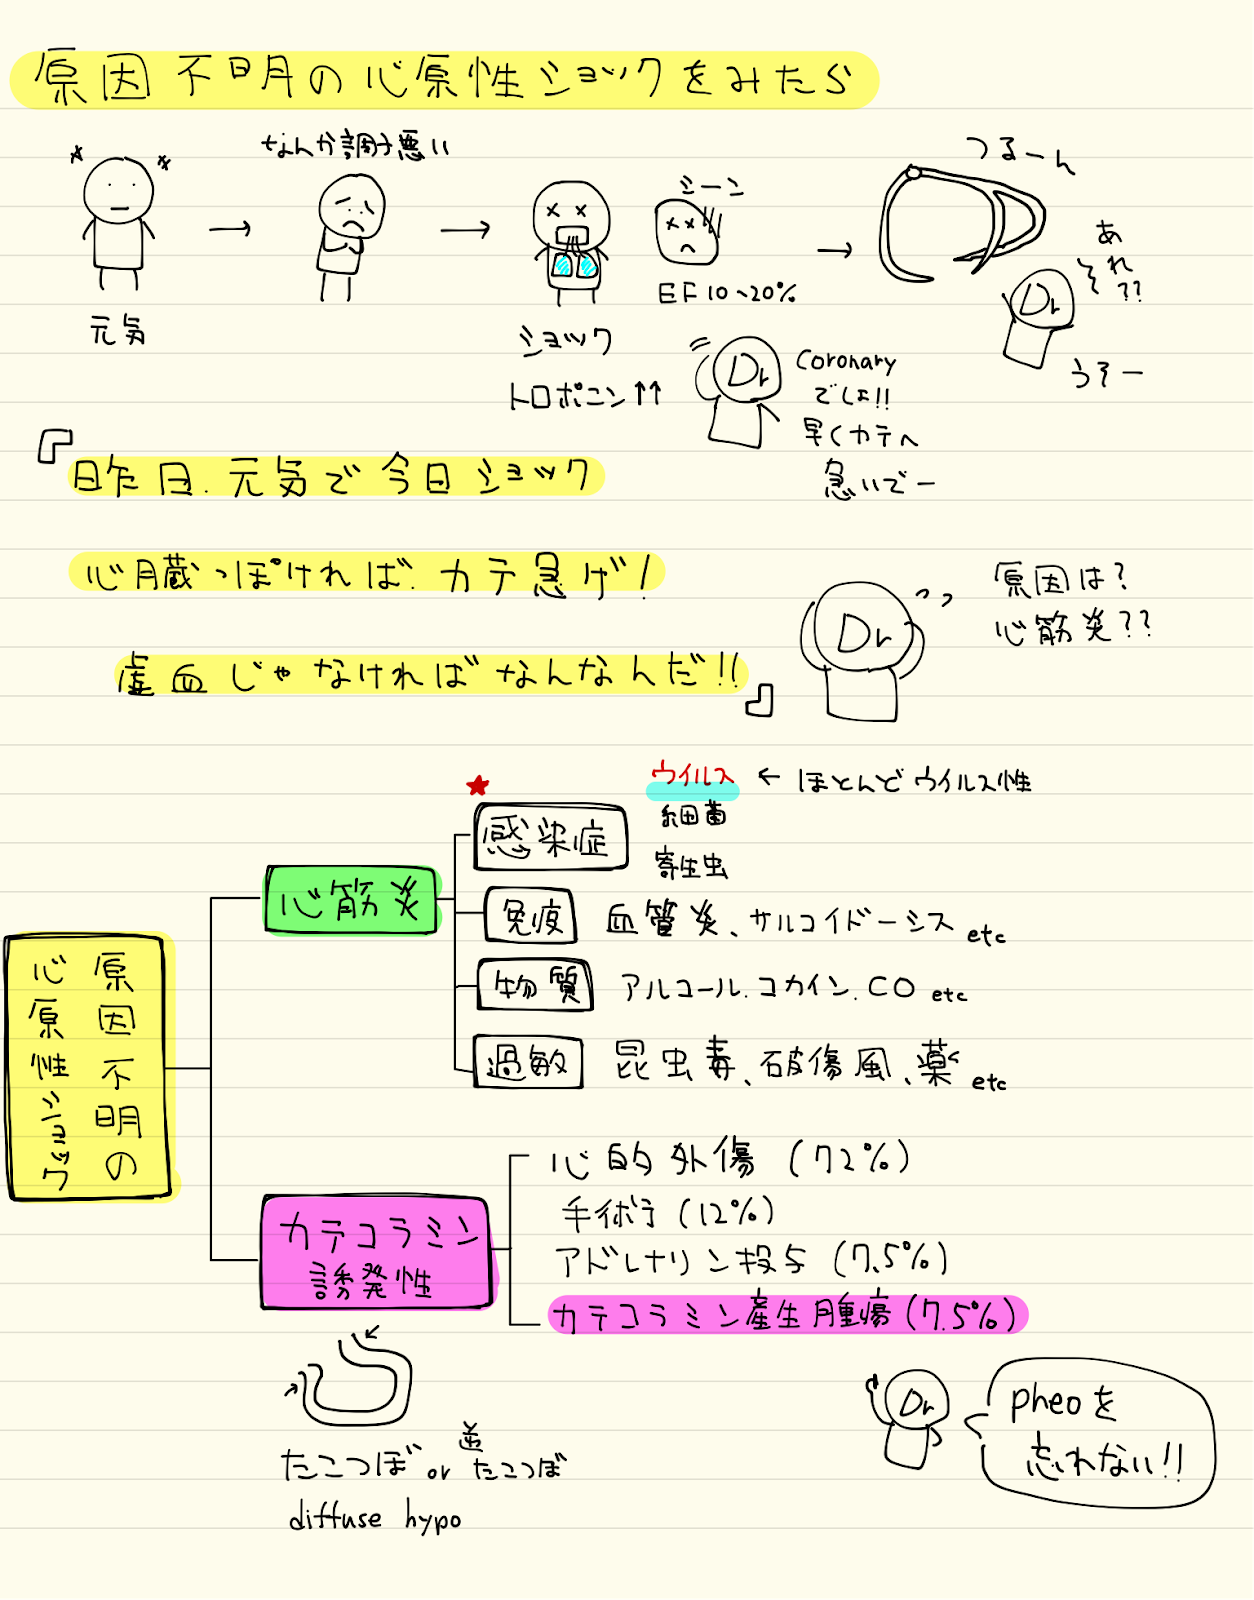 原因不明の心原性ショックをみたら
なんか調子悪い
元気
ショック
トロポニン↑↑
シーン
EF10~20%
Dr
Coronary
でしょ!!
早くカテへ
急いでー
つるーん
あれ??
Dr
うそー
『昨日元気で今日ショック
心臓っぽければカテ急げ!
虚血じゃなければなんなんだ!!』
Dr
原因は?
心筋炎??
原因不明の
心原性ショック
心筋炎
★
感染症
ウイルス ← ほとんどウイルス性
細菌
寄生虫
免疫 血管炎、サルコイドーシス etc
物質 アルコール.コカイン.CO etc
過敏 昆虫毒、破傷風、薬 etc
カテコラミン
誘発性
心的外傷 (72%)
手術 (12%)
アドレナリン投与 (7.5%)
カテコラミン産生腫瘍 (7.5%)
たこつぼ or 逆たこつぼ
diffuse hypo
Dr
pheoを
忘れない!!